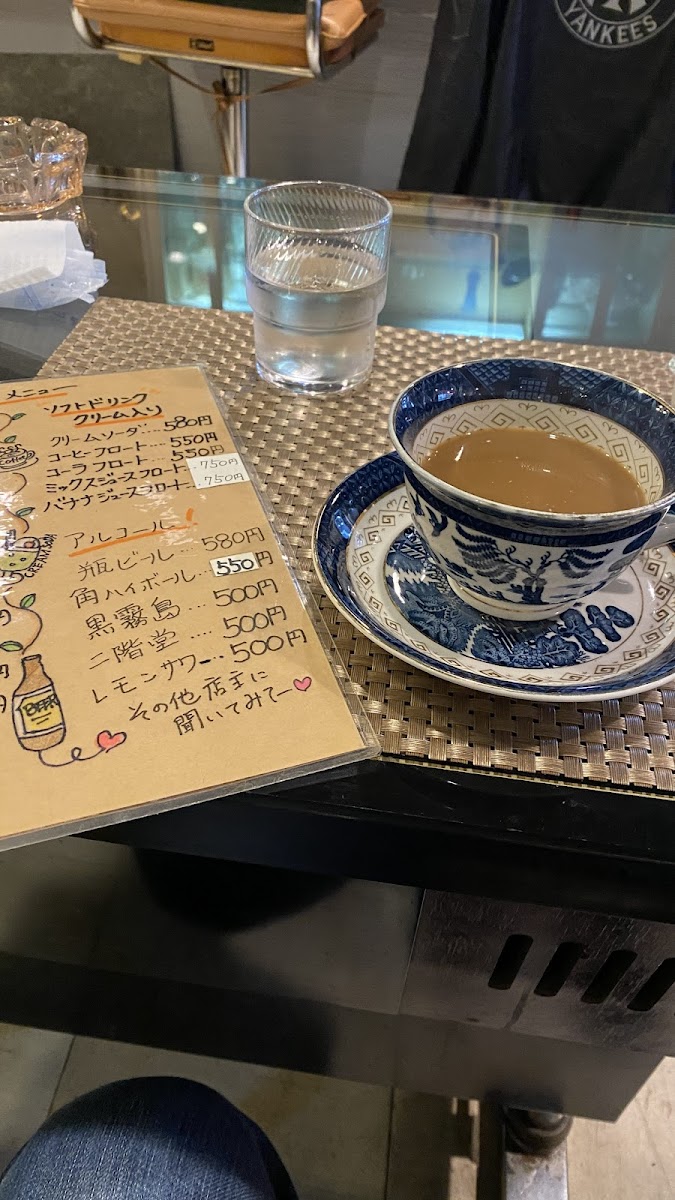 YANKEES
メニュー
ソフトドリンク
クリーム入り
クリームソーダ‥‥580円
コーヒーフロート‥‥550円
コーラフロート‥‥550円
ミックスジュースフロート‥750円
バナナジュースフロート‥‥750円
アルコール！
瓶ビール‥‥580円
角ハイボール‥550円
黒霧島‥‥500円
二階堂‥‥500円
レモンサワー‥‥500円
その他店主に
聞いてみてー
BEER